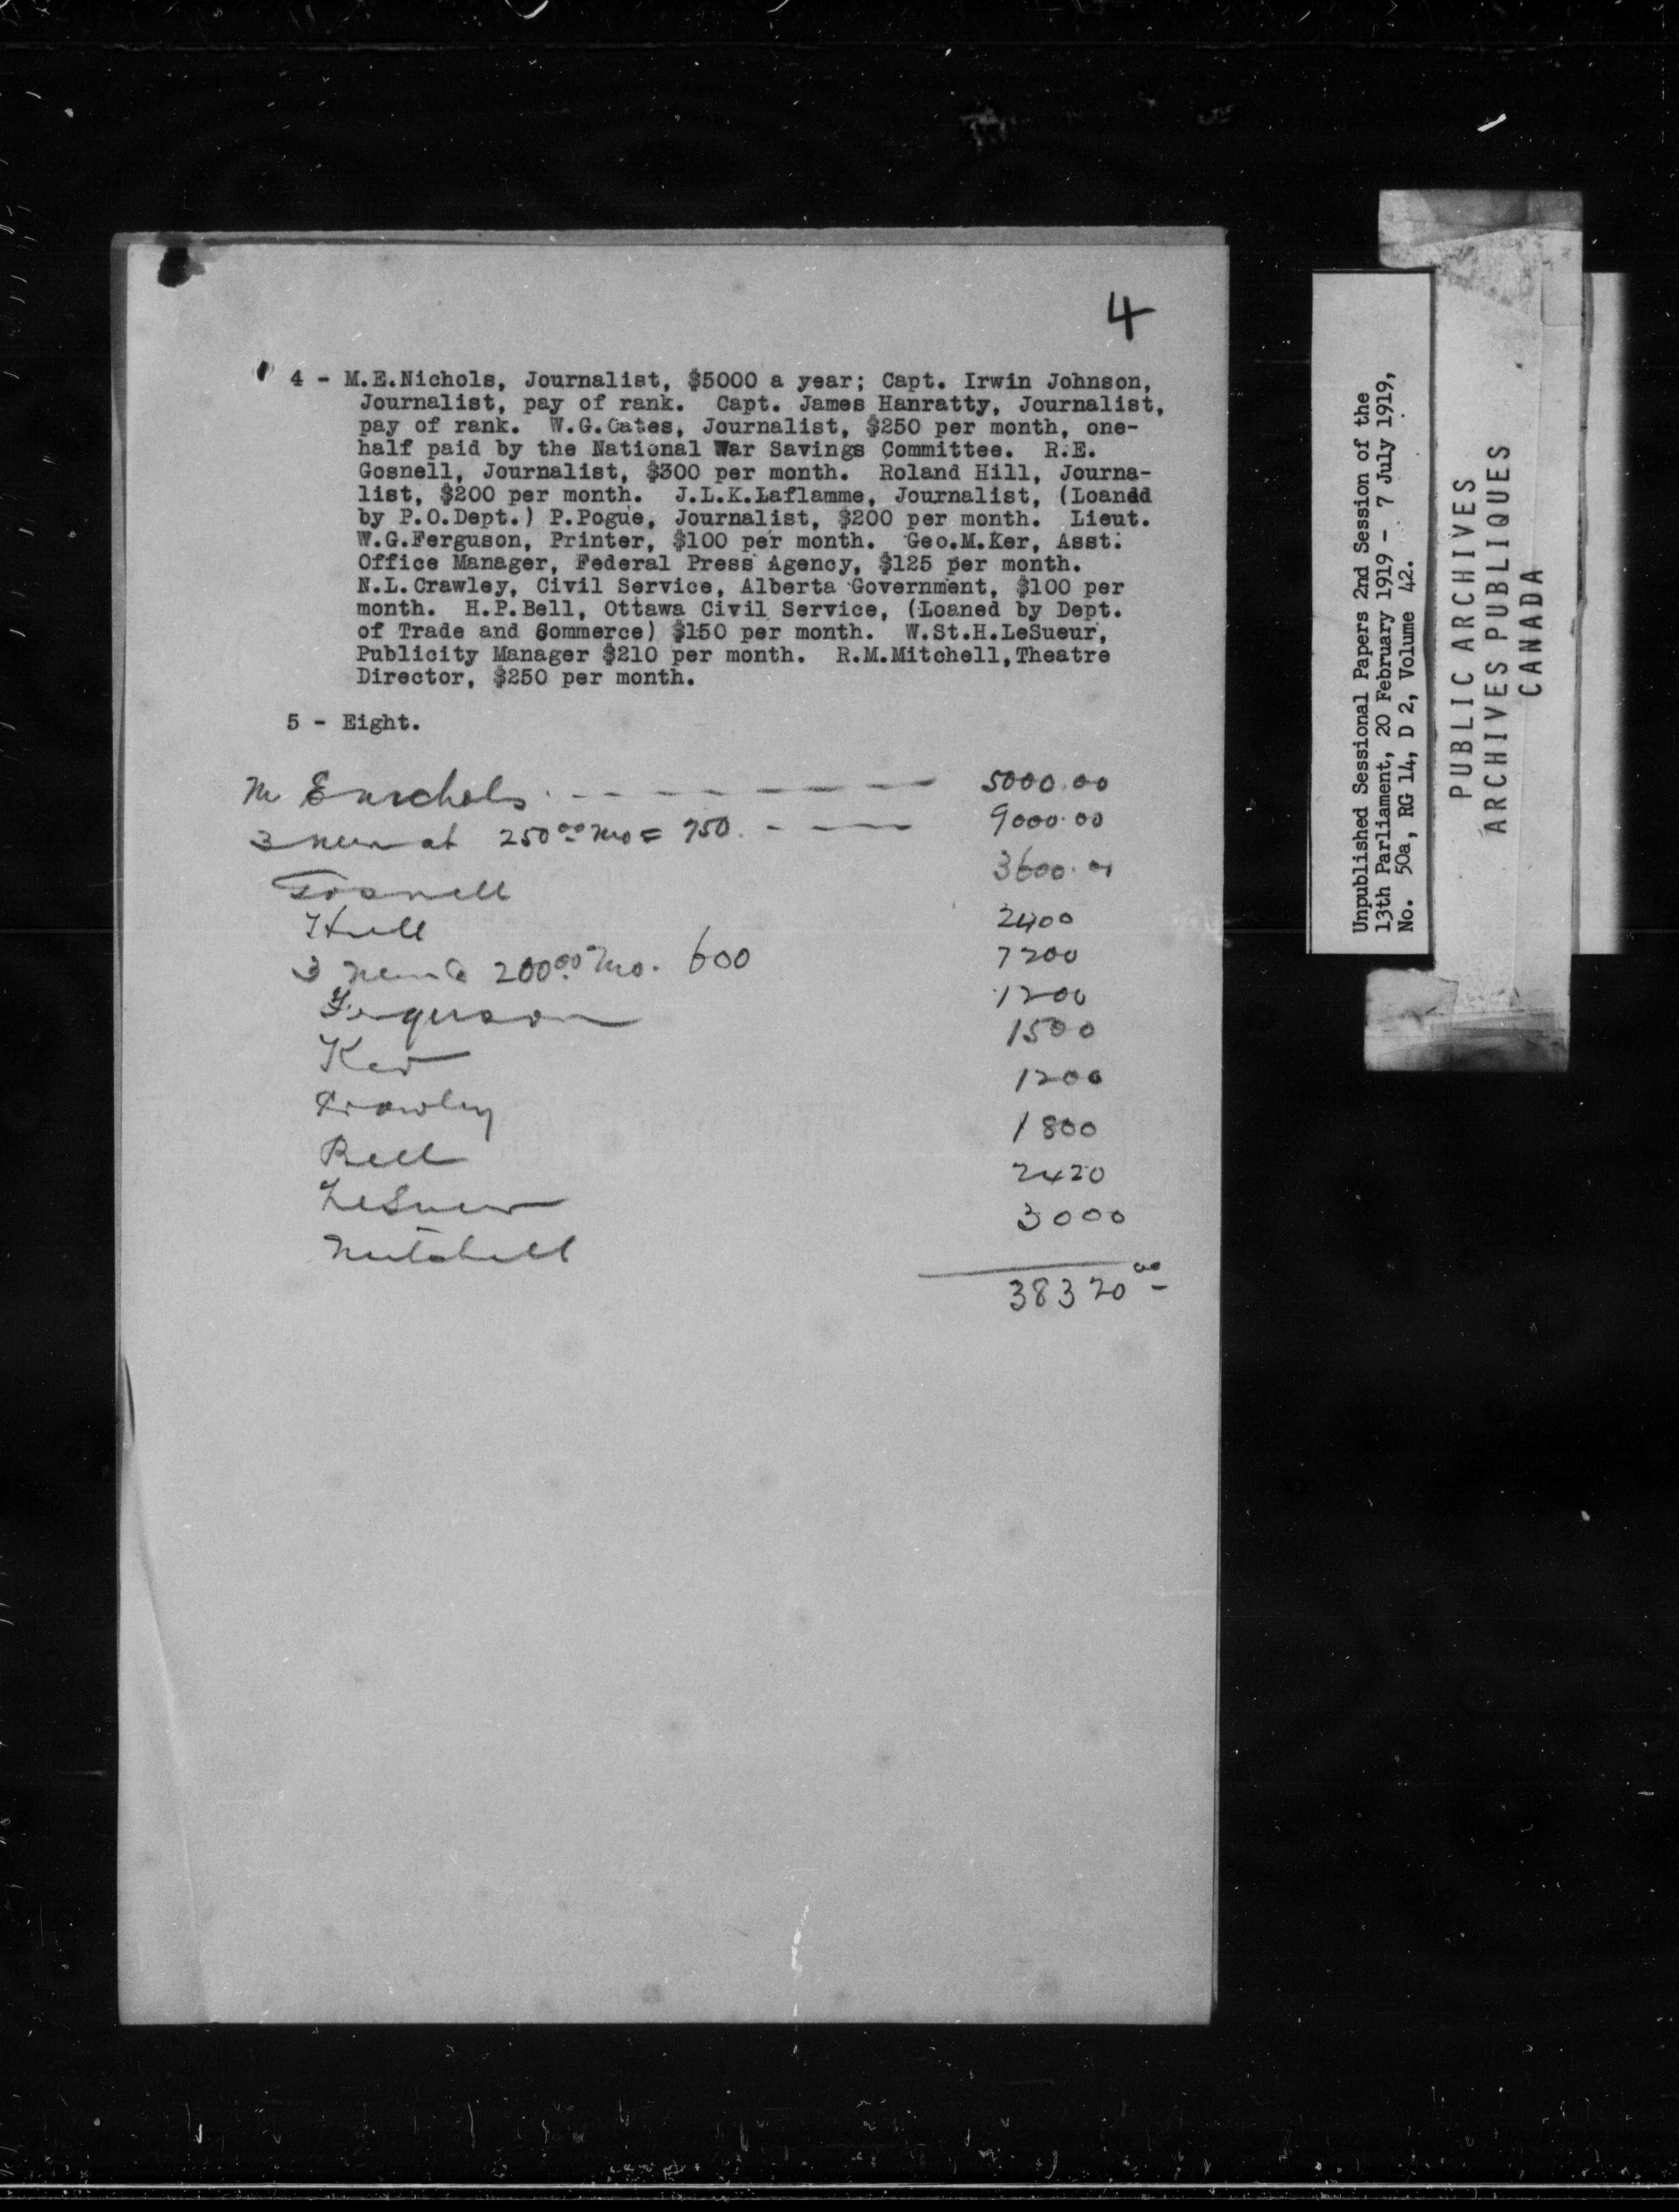 4
4 - M.E.Nichols, Journalist, $5000 a year; Capt. Irwin Johnson,
Journalist, pay of rank. Capt. James Hanratty, Journalist,
pay of rank. W.G.Cates, Journalist, $250 per month, one-
half paid by the National War Savings Committee. R.E.
Gosnell, Journalist, $300 per month. Roland Hill, Journa-
list, $200 per month. J.L.K.Laflamme, Journalist, (Loaned
by P.O.Dept.) P.Pogue, Journalist, $200 per month. Lieut.
W.G.Ferguson, Printer, $100 per month. Geo.M.Ker, Asst.
Office Manager, Federal Press Agency, $125 per month.
N.L.Crawley, Civil Service, Alberta Government, $100 per
month. H.P.Bell, Ottawa Civil Service, (Loaned by Dept.
of Trade and Commerce) $150 per month. W.St.H.LeSueur,
Publicity Manager $210 per month. R.M.Mitchell,Theatre
Director, $250 per month.
5 - Eight.
M E Nichols - - - - - - - - 5000.00
3 men at 250 00 mo = 750. - - - 9000.00
Gosnell 3600.00
Hill 2400
3 men @ 200 00 mo. 600 7200
Ferguson 1200
Ker 1500
Crawley 1200
Bell 1800
LeSueur 2420
Mitchell 3000
38320 00
Unpublished Sessional Papers 2nd Session of the
13th Parliament, 20 February 1919 - 7 July 1919,
No. 50a, RG 14, D 2, Volume 42.
PUBLIC ARCHIVES
ARCHIVES PUBLIQUES
CANADA